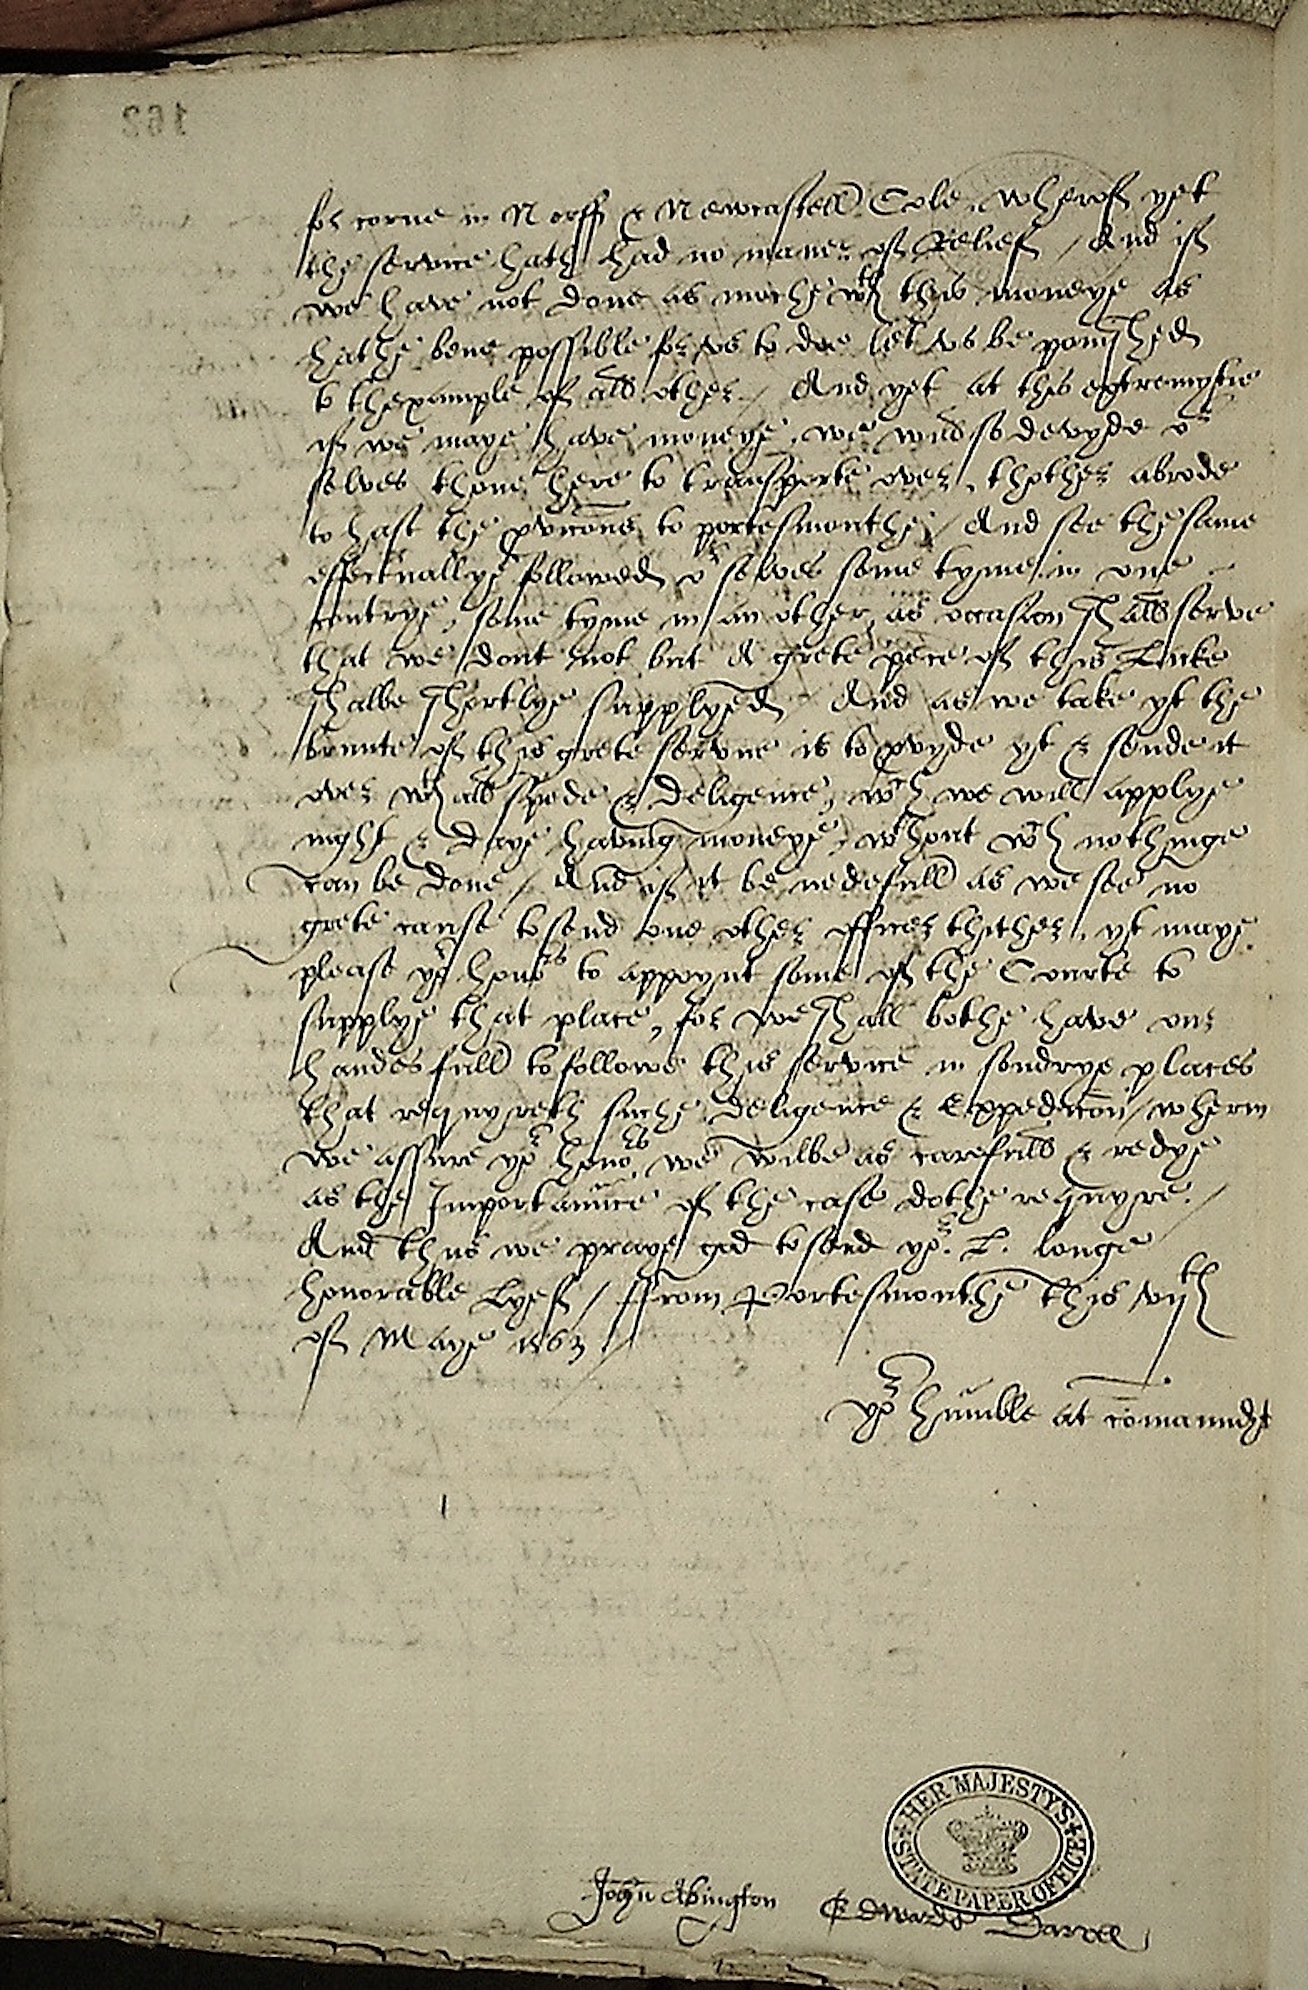 162
for corne in Norff & Newcastell Cole, wherof yet
the service hath had no maner of Relief / And if
we have not done as moche wth this moneye as
hathe bene possible for us to doe let us be ponyshed
to thexample of all other / And yet at this extremytie
if we maye have moneye, we will so devyde or
selves thone here to transporte over, thother abrode
to hast the pvicons to portesmouthe / And see the same
effectuallye followed or selves some tyme in one
contrye, some tyme in an other, as occasion shall serve
that we dout not but A grete pece of this Lacke
shalbe shortlye supplyed / And as we take yt the
brunte of this grete service is to pvyde yt & sende it
over wth all spede & deligence, wch we will applye
nyght & daye having moneye, wthout wch nothinge
can be done / And if it be nedefull as we see no
grete cause to send one other officer thither, yt maye
please yor honors to appoynt some of the Courte to
supplye that place, for we shall bothe have our
handes full to followe this service in sondrye places
that requyreth suche deligence & Expedicon / wherin
we assure yor honors we wilbe as carefull & redye
as the Importaunce of the case dothe requyre /
And thus we praye god to send yor L. longe
honorable Lyef / ffrom Portesmouthe this vijth
of Maye 1563 /
yor humble at comaundt
HER MAJESTY'S
STATE PAPER OFFICE
John Abington Edwarde Darrel